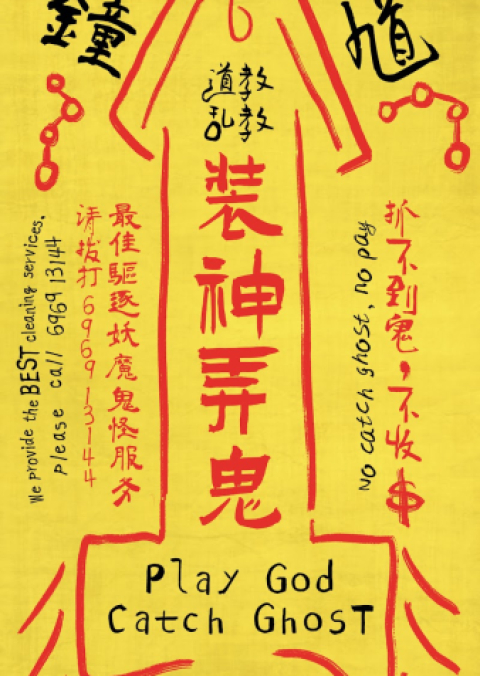 鐘馗
道教
乱教
装神弄鬼
抓不到鬼，不收$
No catch ghost, no pay
最佳驅逐妖魔鬼怪服务
请拨打 6969 13144
Please call 6969 13144
We provide the BEST cleaning services.
Play God
Catch GhosT